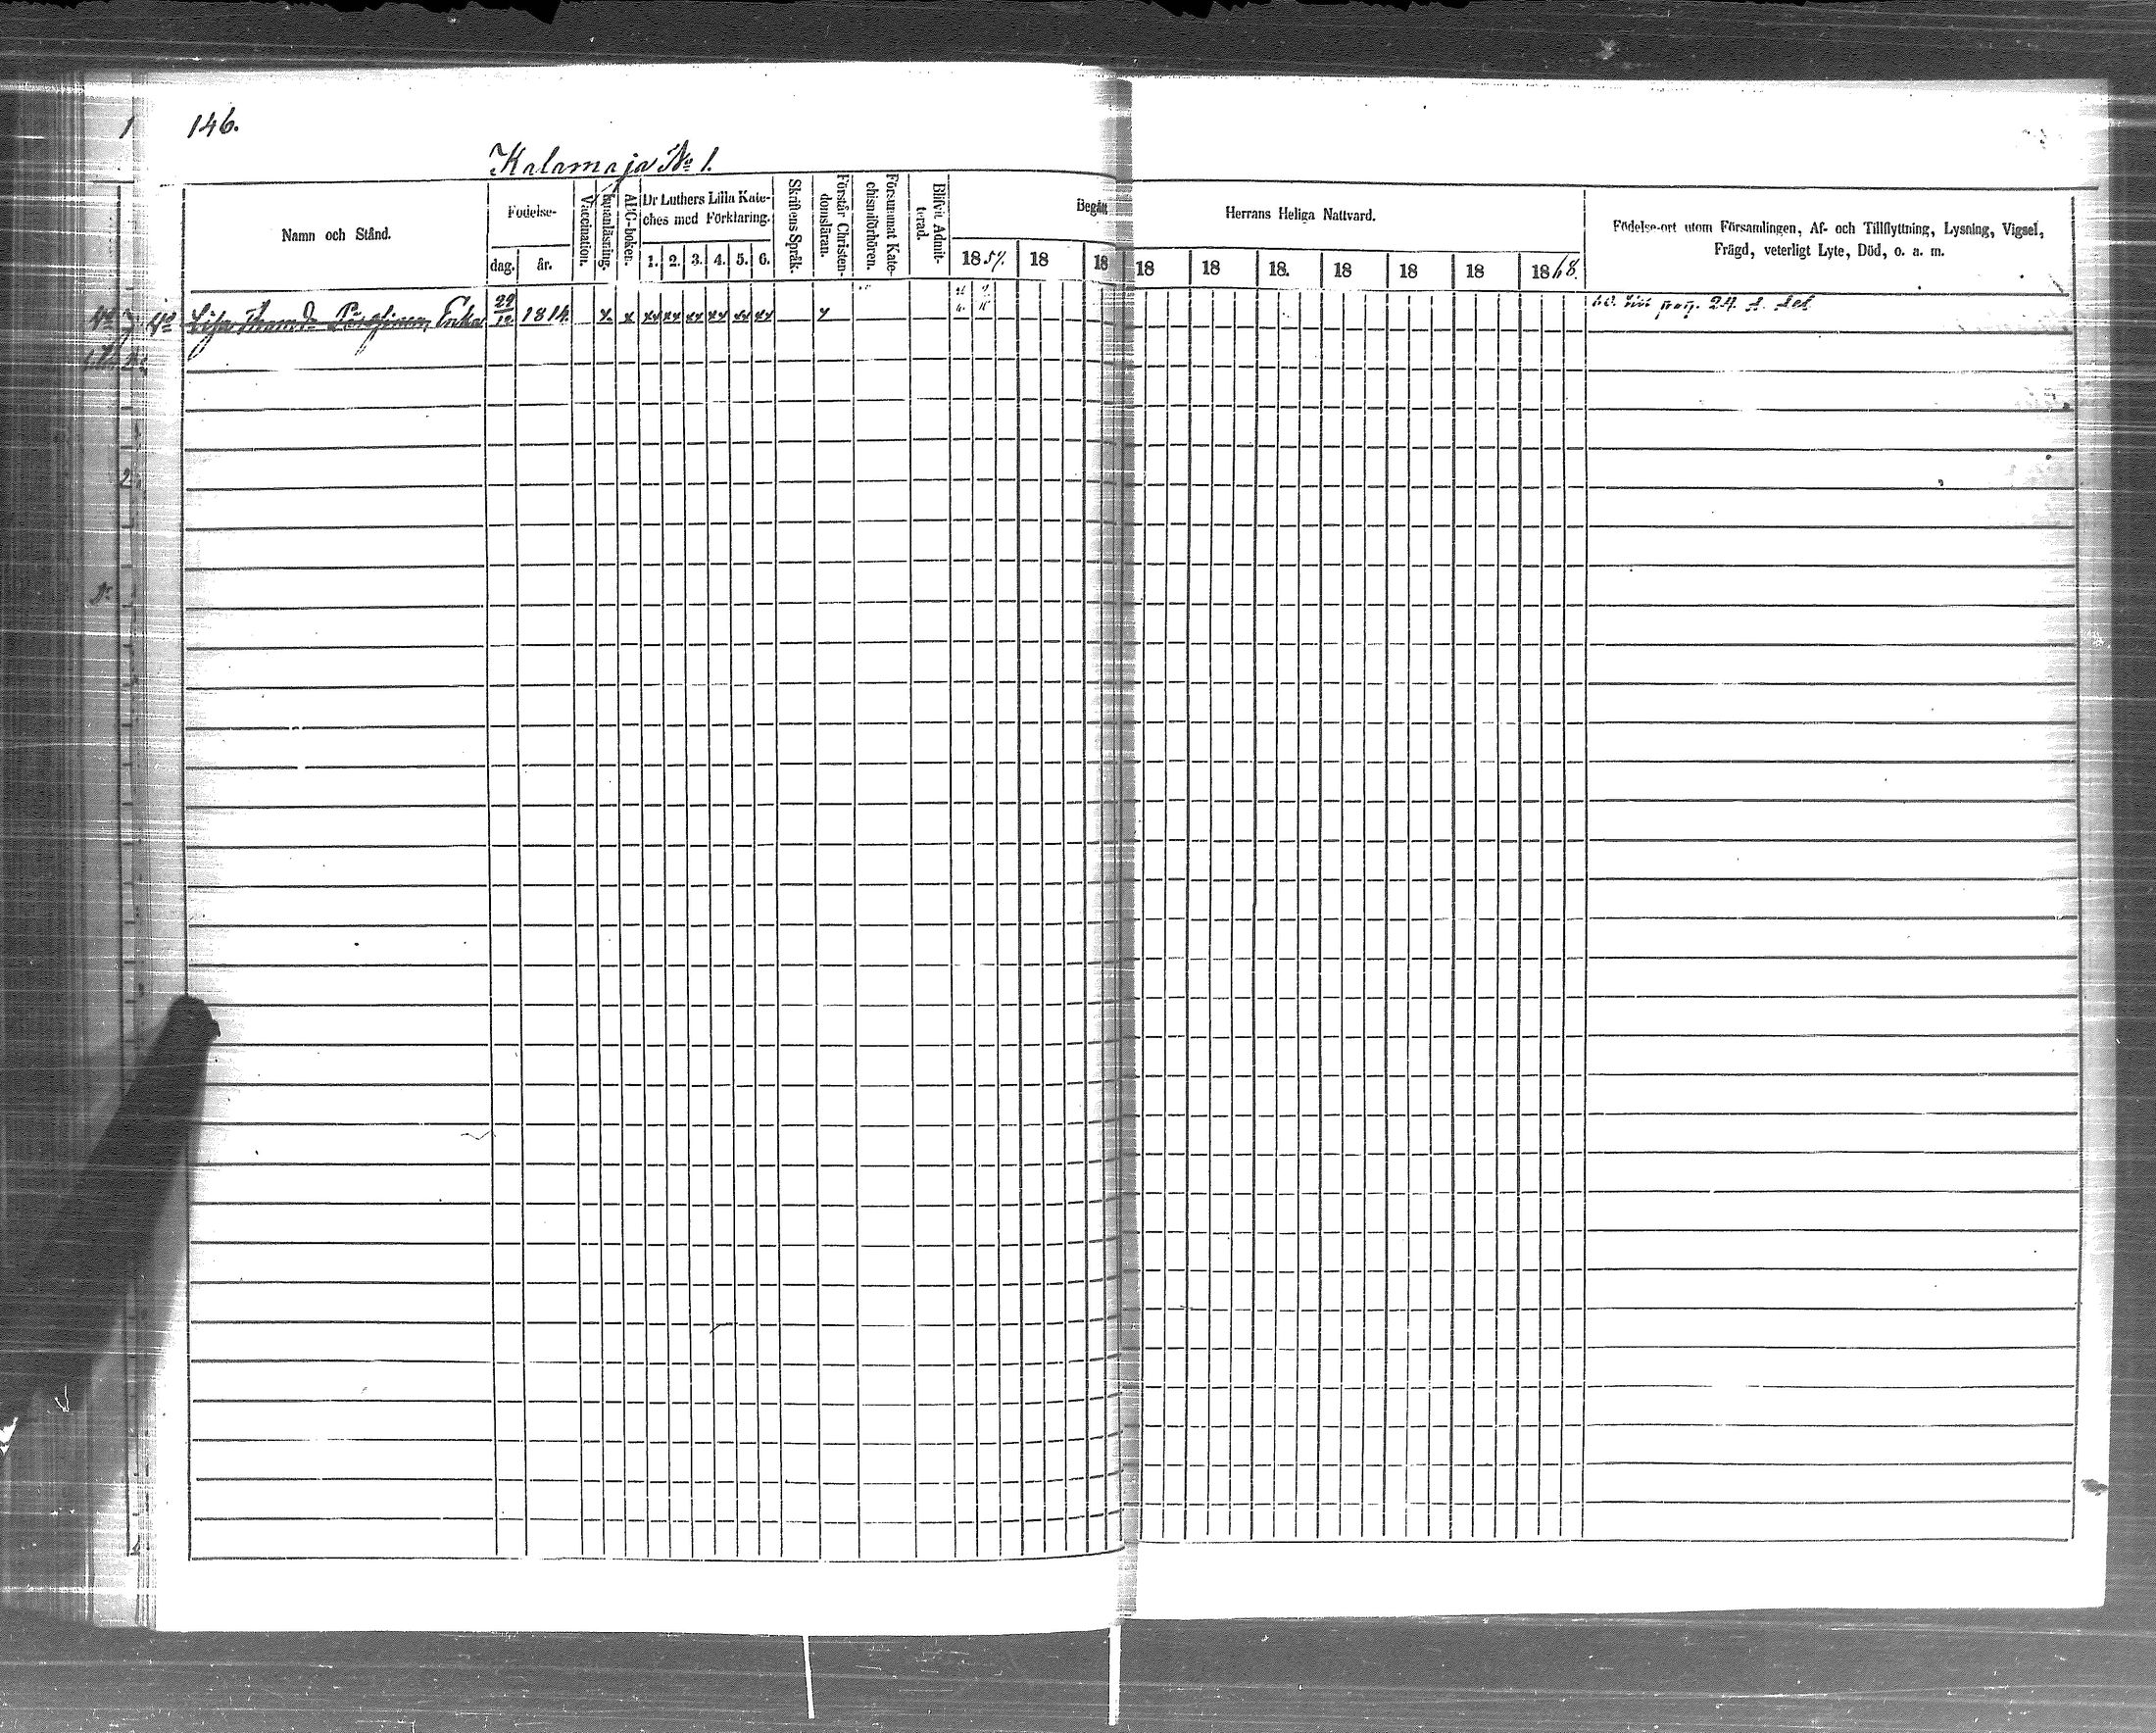 146.
Kalamaja No 1.
Namn och Stånd.
Födelse-
dag.
år.
Vaccination.
Innanläsning.
ABC-boken.
Dr Luthers Lilla Kate-
ches med Förklaring.
1. 2. 3. 4. 5. 6.
Skriftens Språk.
Förstår Christen-
domsläran.
Försummat Kate-
chismiförhören.
Blifvit Admit-
terad.
Begått Herrans Heliga Nattvard.
1857. 18 18 18 18 18. 18 18 18 1868.
Födelse-ort utom Församlingen, Af- och Tillflyttning, Lysning, Vigsel,
Frägd, veterligt Lyte, Död, o. a. m.
Lisa Enka 29/12 1814 x x xx xx xx xx xx xx x pag. 24.